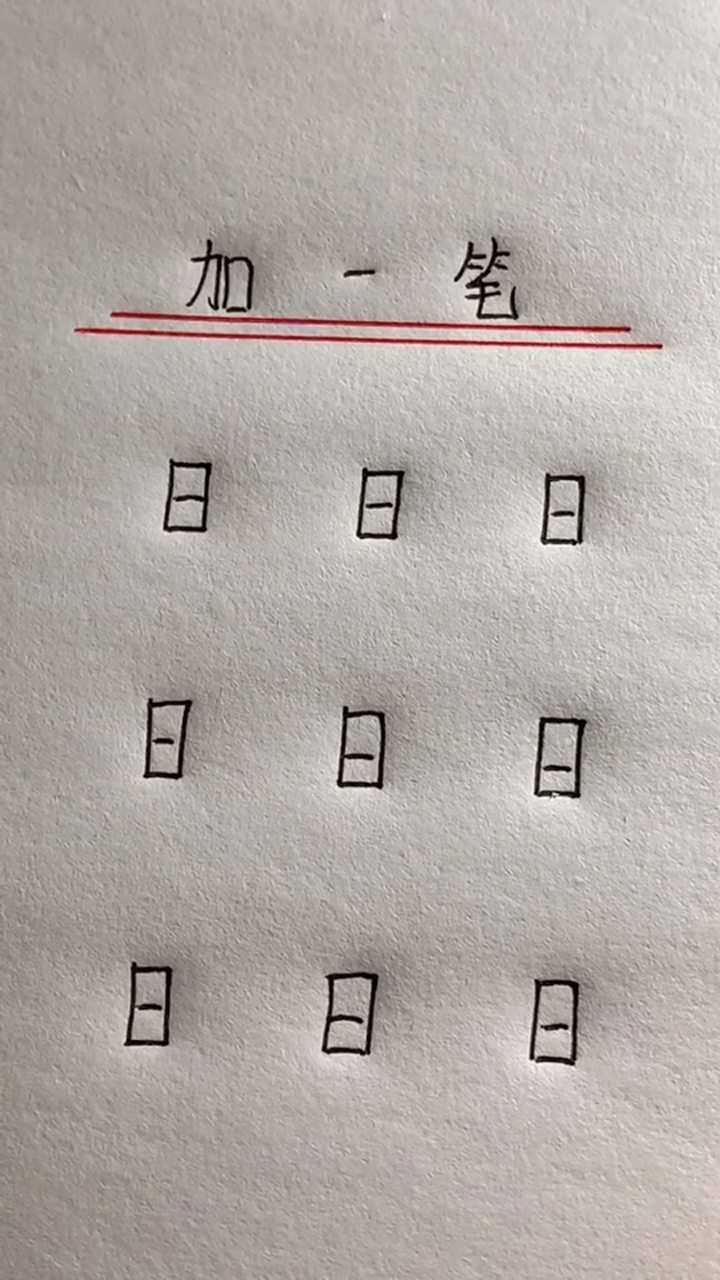 加一笔
日 日 日
日 日 日
日 日 日